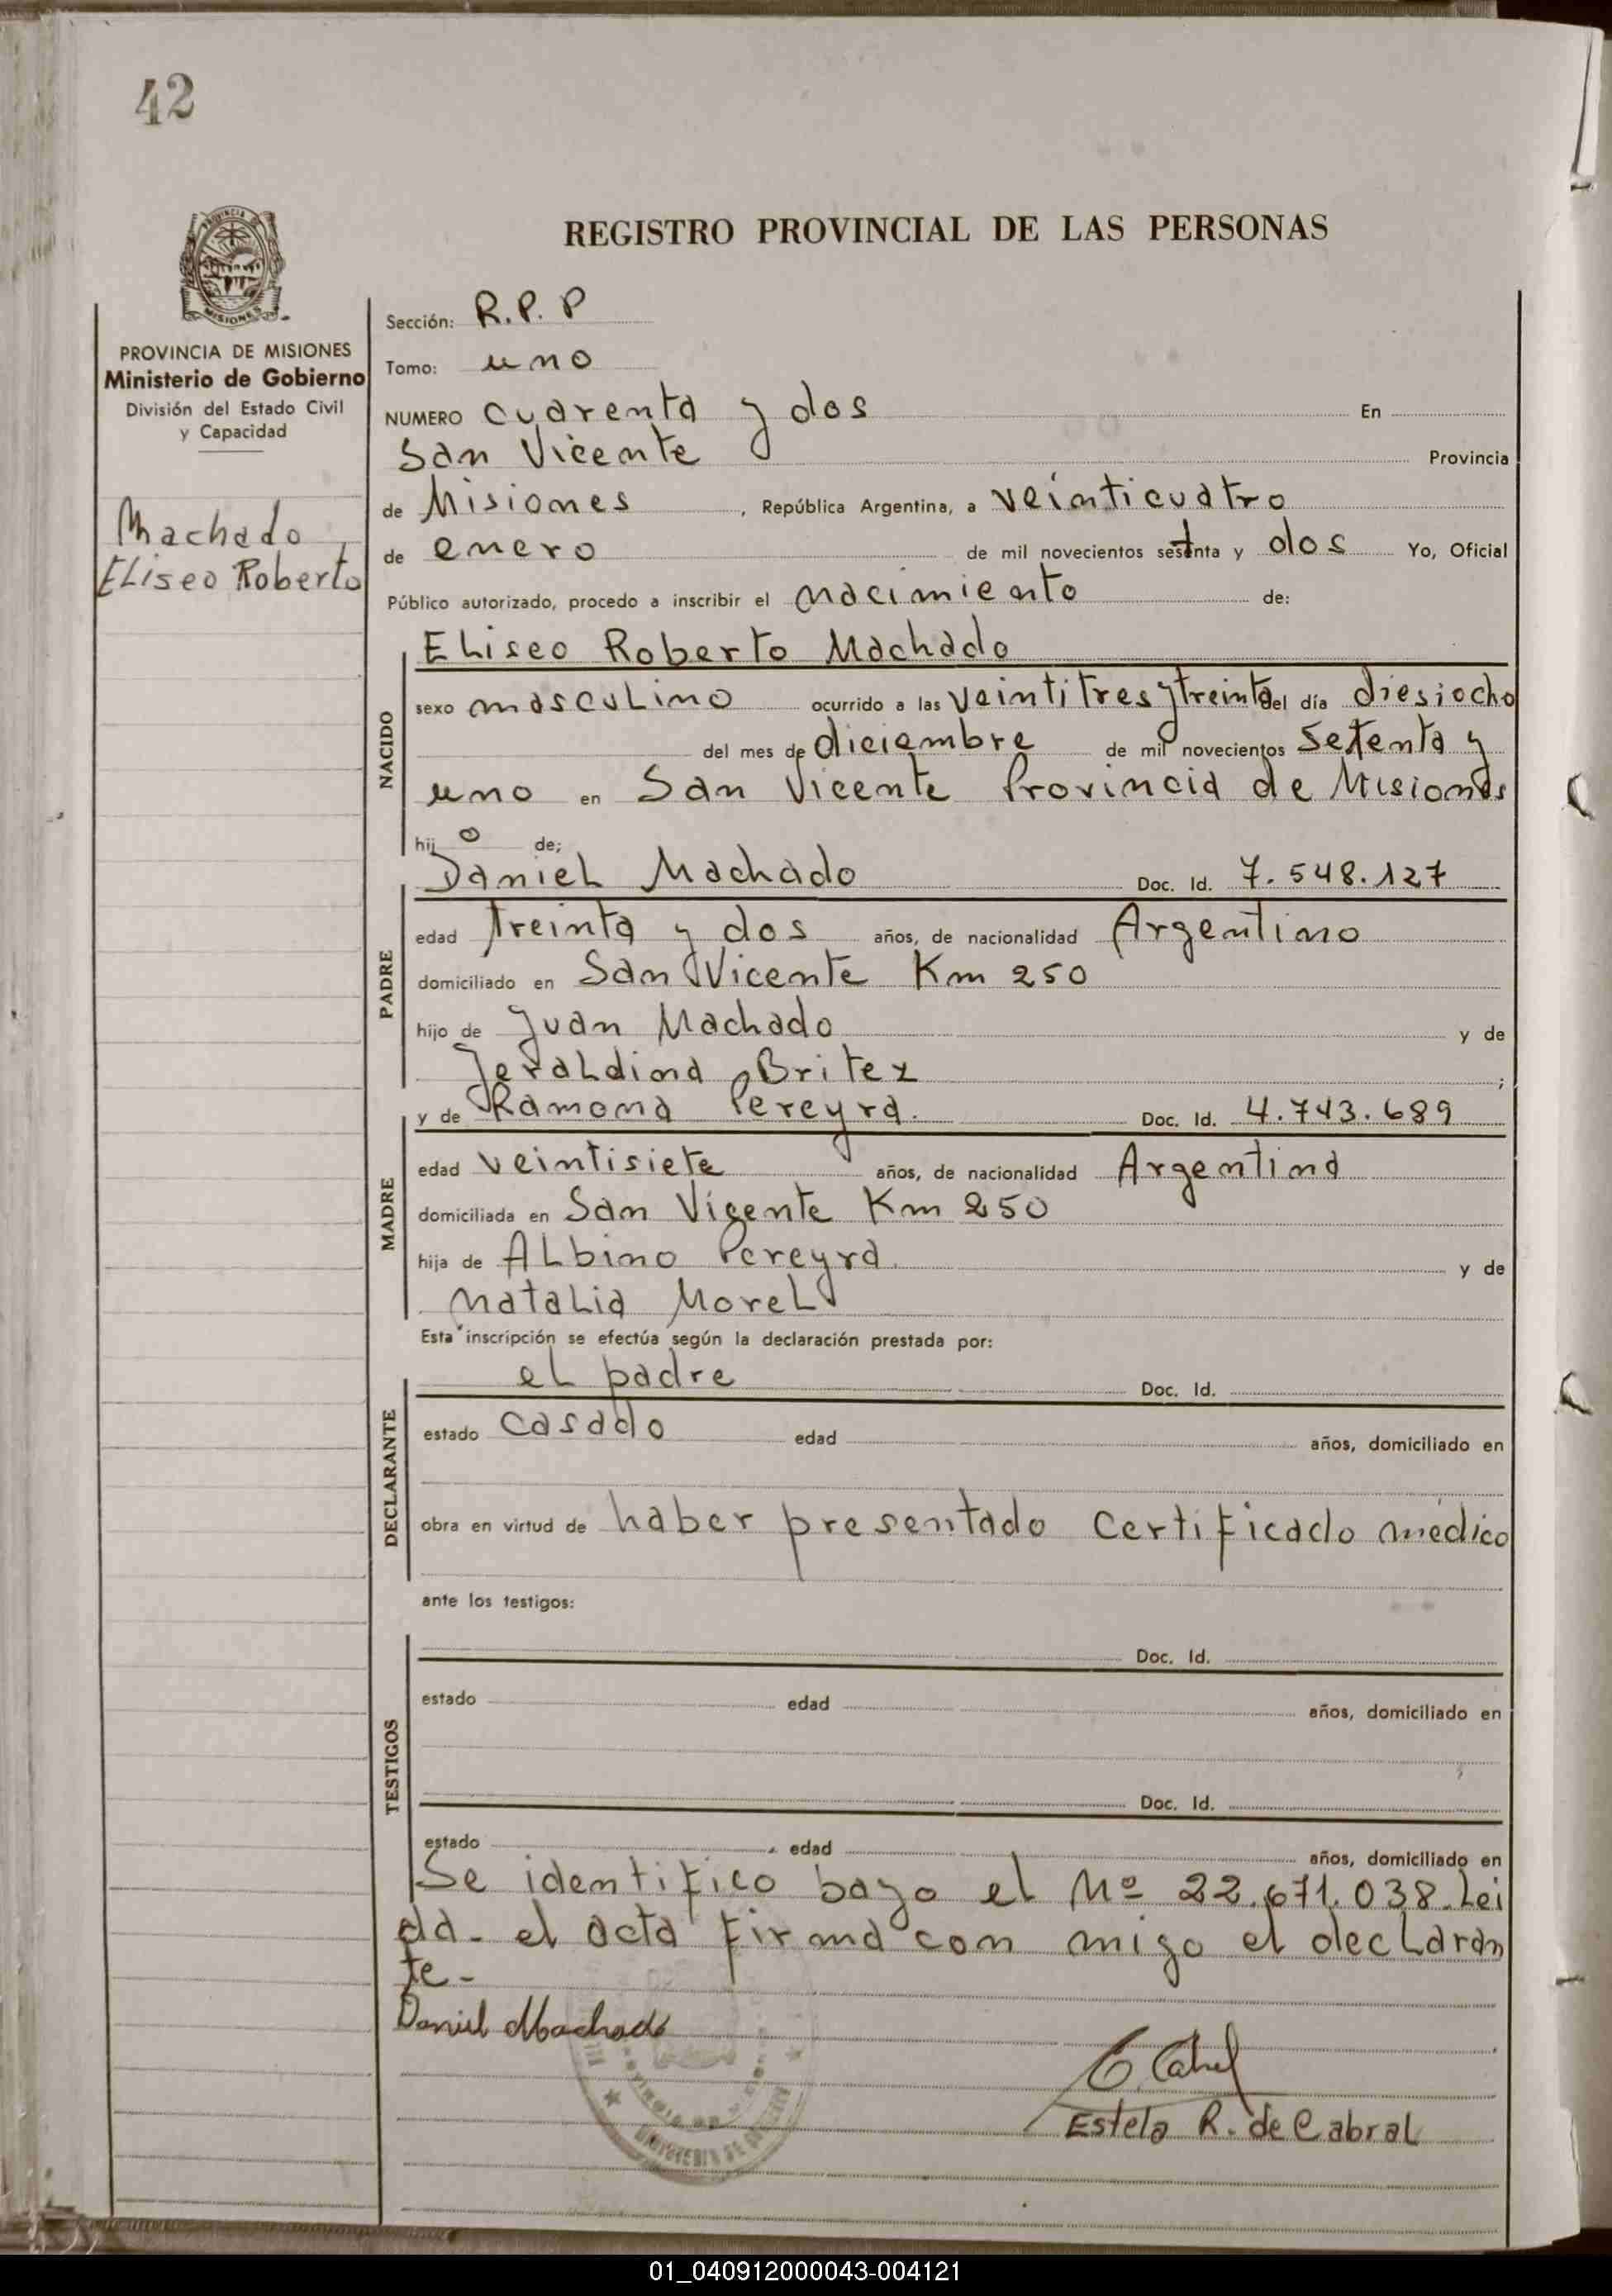 42
REGISTRO PROVINCIAL DE LAS PERSONAS
PROVINCIA DE MISIONES
Ministerio de Gobierno
División del Estado Civil
y Capacidad
Machado
ELiseo Roberto
Sección: R.P.P
Tomo: uno
NUMERO cuarenta y dos En
San Vicente Provincia
de Misiones , República Argentina, a veinticuatro
de enero de mil novecientos setenta y dos Yo, Oficial
Público autorizado, procedo a inscribir el nacimiento de:
NACIDO
ELiseo Roberto Machado
sexo mascuLino ocurrido a las veintitres y treinta del día diesiocho
del mes de diciembre de mil novecientos setenta y
uno en San Vicente Provincia de Misiones
hijo de;
PADRE
DanieL Machado Doc. Id. 7.548.127
edad treinta y dos años, de nacionalidad Argentino
domiciliado en San Vicente Km 250
hijo de Juan Machado y de
JeraLdina Britez ;
MADRE
y de Ramona Pereyra. Doc. Id. 4.743.689
edad veintisiete años, de nacionalidad Argentina
domiciliada en San Vicente Km 250
hija de ALbino Pereyra. y de
NataLia MoreL
Esta inscripción se efectúa según la declaración prestada por:
DECLARANTE
eL padre Doc. Id.
estado casado edad años, domiciliado en
obra en virtud de haber presentado certificado médico
ante los testigos:
TESTIGOS
Doc. Id.
estado edad años, domiciliado en
Doc. Id.
estado edad años, domiciliado en
Se identifico bajo el Nº 22.671.038. Lei
da. el acta firma con migo el decLaran
te-
Daniel Machado
E. Cabral
Estela R. de Cabral
01_040912000043-004121